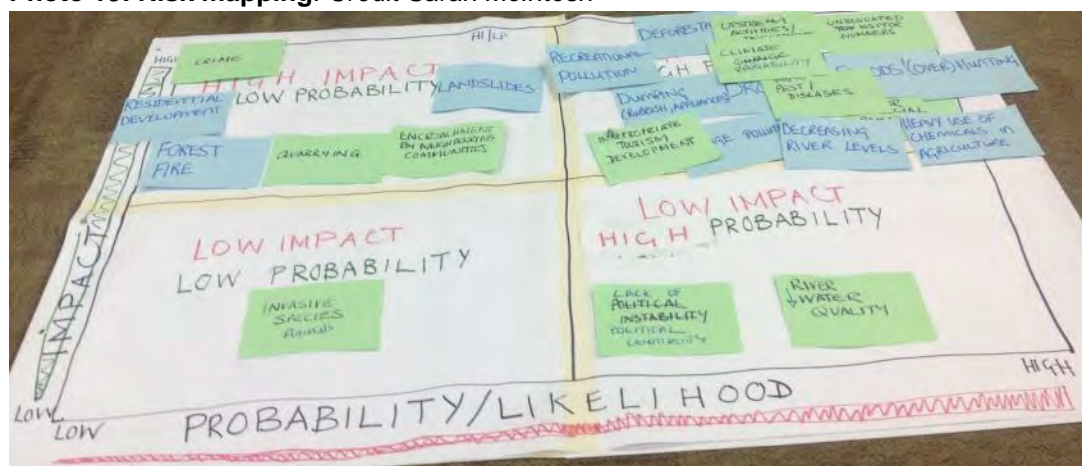 Photo 10: Risk mapping. Credit Sarah McIntosh
HIGH
HI/LP
CRIME
HIGH IMPACT
LOW PROBABILITY
RESIDENTIAL
DEVELOPMENT
LANDSLIDES
FOREST
FIRE
QUARRYING
ENCROACHMENT
BY NEIGHBOURING
COMMUNITIES
RECREATIONAL
POLLUTION
UPSTREAM
ACTIVITIES/
CLIMATE
CHANGE
VARIABILITY
UNREGULATED
VISITOR
NUMBERS
DUMPING
(RUBBISH, APPLIANCES)
PEST/
DISEASES
(OVER) HUNTING
INAPPROPRIATE
TOURISM
DEVELOPMENT
DECREASING
RIVER LEVELS
HEAVY USE OF
CHEMICALS IN
AGRICULTURE
IMPACT
LOW IMPACT
LOW PROBABILITY
INVASIVE
SPECIES
Animals
LOW IMPACT
HIGH PROBABILITY
LACK OF
POLITICAL
INSTABILITY
POLITICAL
CONTINUITY
RIVER
WATER
QUALITY
LOW
LOW
PROBABILITY/LIKELIHOOD
HIGH